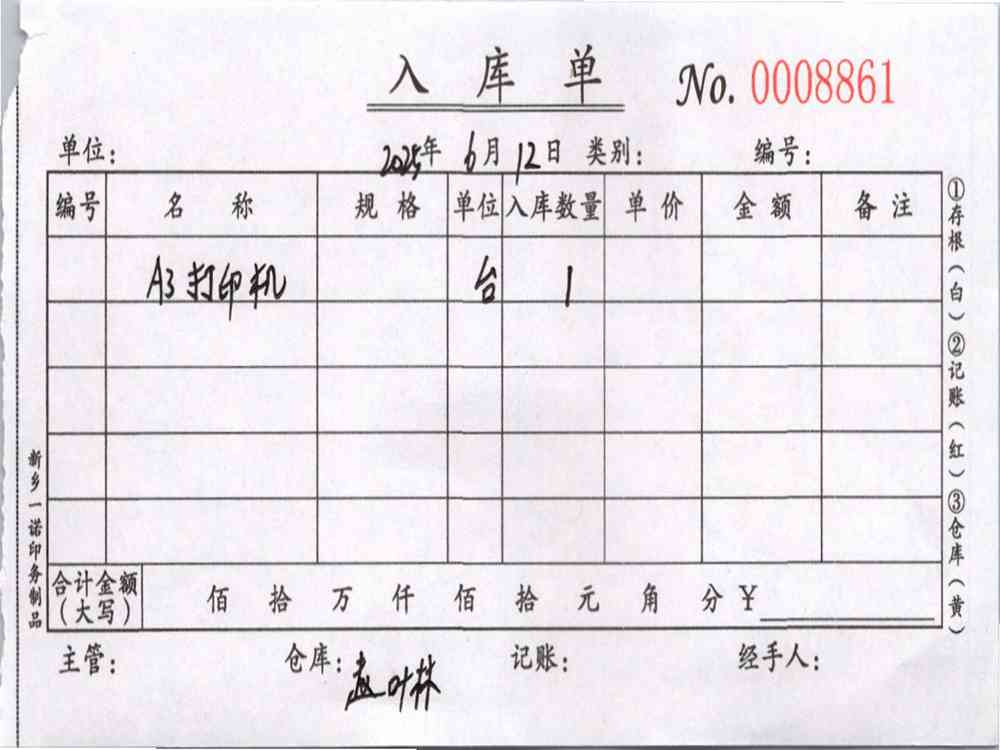 入库单 No. 0008861
单位： 2025年 6月 12日 类别： 编号：
编号 名称 规格 单位 入库数量 单价 金额 备注
A3打印机 台 1
合计金额（大写） 佰 拾 万 仟 佰 拾 元 角 分 ¥
主管： 仓库：赵叶林 记账： 经手人：
①存根（白）②记账（红）③仓库（黄）
新乡一诺印务制品